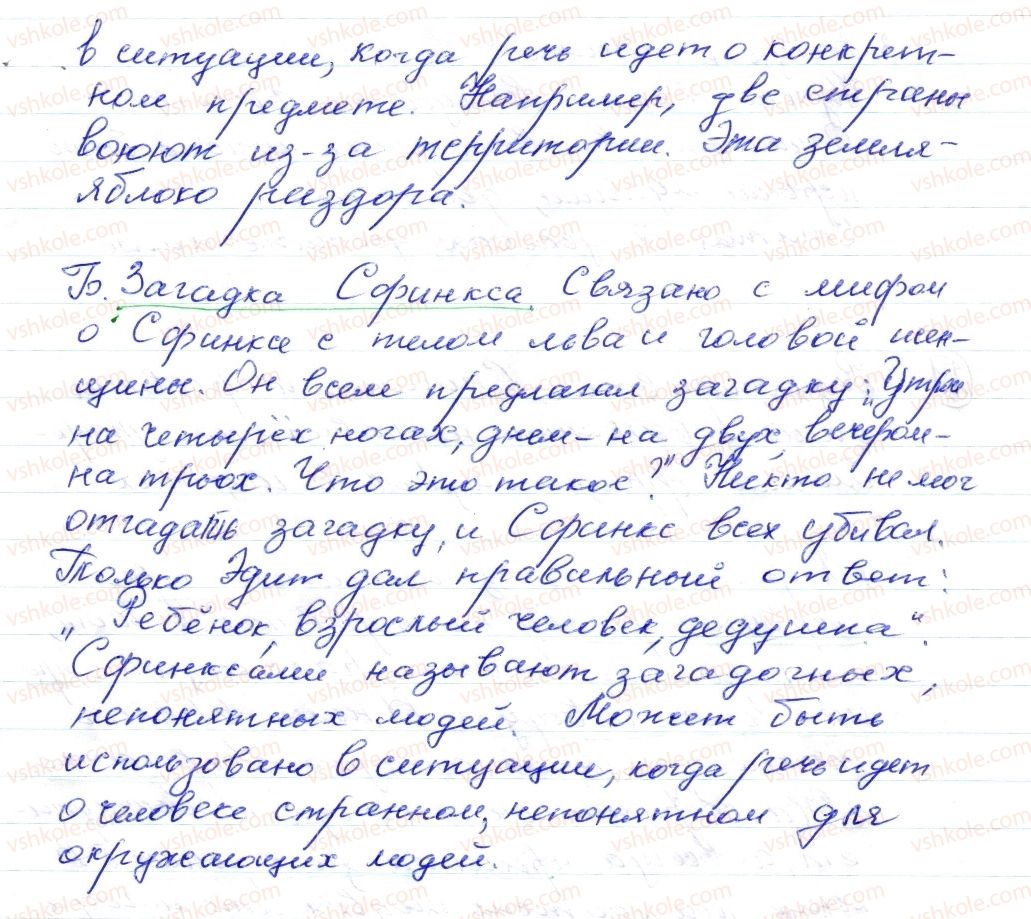 в ситуации, когда речь идет о конкрет-
ном предмете. Например, две страны
воюют из-за территории. Эта земля-
яблоко раздора.
Б. Загадка Сфинкса. Связано с мифом
о Сфинксе с телом льва и головой жен-
щины. Он всем предлагал загадку: „Утром
на четырёх ногах, днем - на двух, вечером -
на трьох. Что это такое?" Никто не мог
отгадать загадку, и Сфинкс всех убивал.
Только Эдип дал правильный ответ:
„Ребёнок, взрослый человек, дедушка".
Сфинксами называют загадочных,
непонятных людей. Может быть
использовано в ситуации, когда речь идет
о человеке странном, непонятном для
окружающих людей.